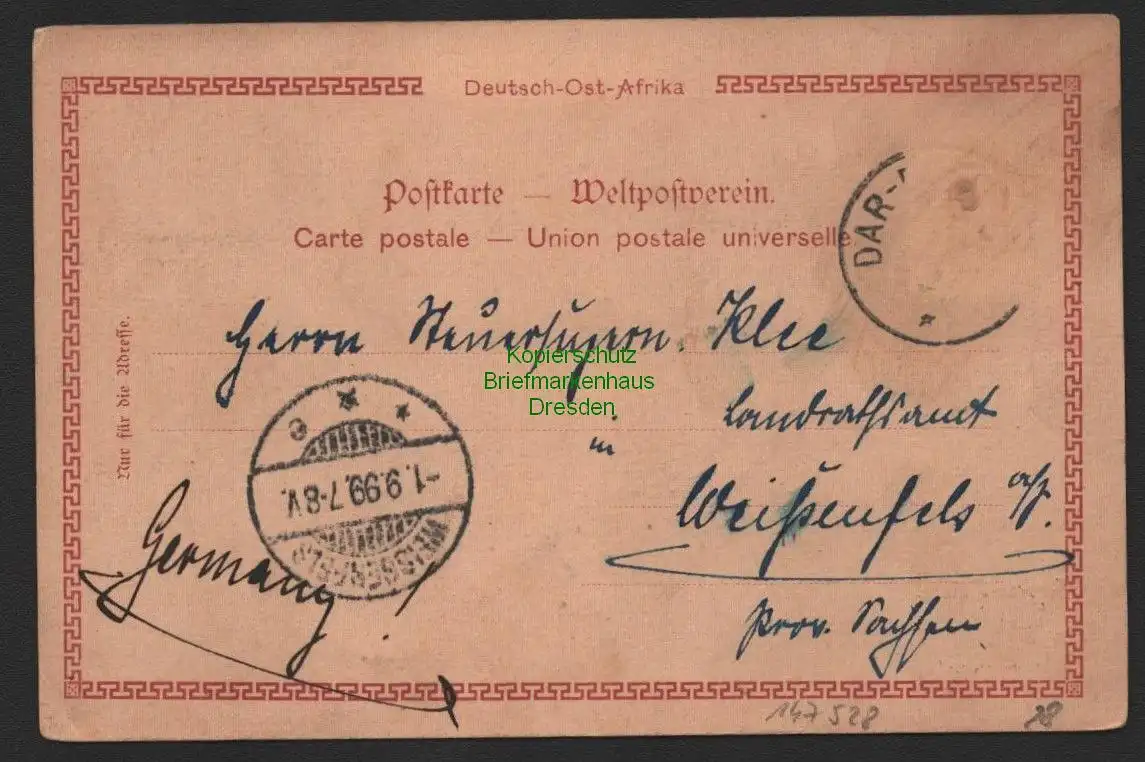 Deutsch-Ost-Afrika
Postkarte — Weltpostverein.
Carte postale — Union postale universelle
DAR-
Nur für die Adresse.
Herrn Steuersupern. Klee
Kopierschutz
Briefmarkenhaus
Dresden
in
Landrathsamt
Weißenfels a/S.
Prov. Sachsen
e
-1.9.99.7-8V.
WEISSENFELS
Germany
147528
28